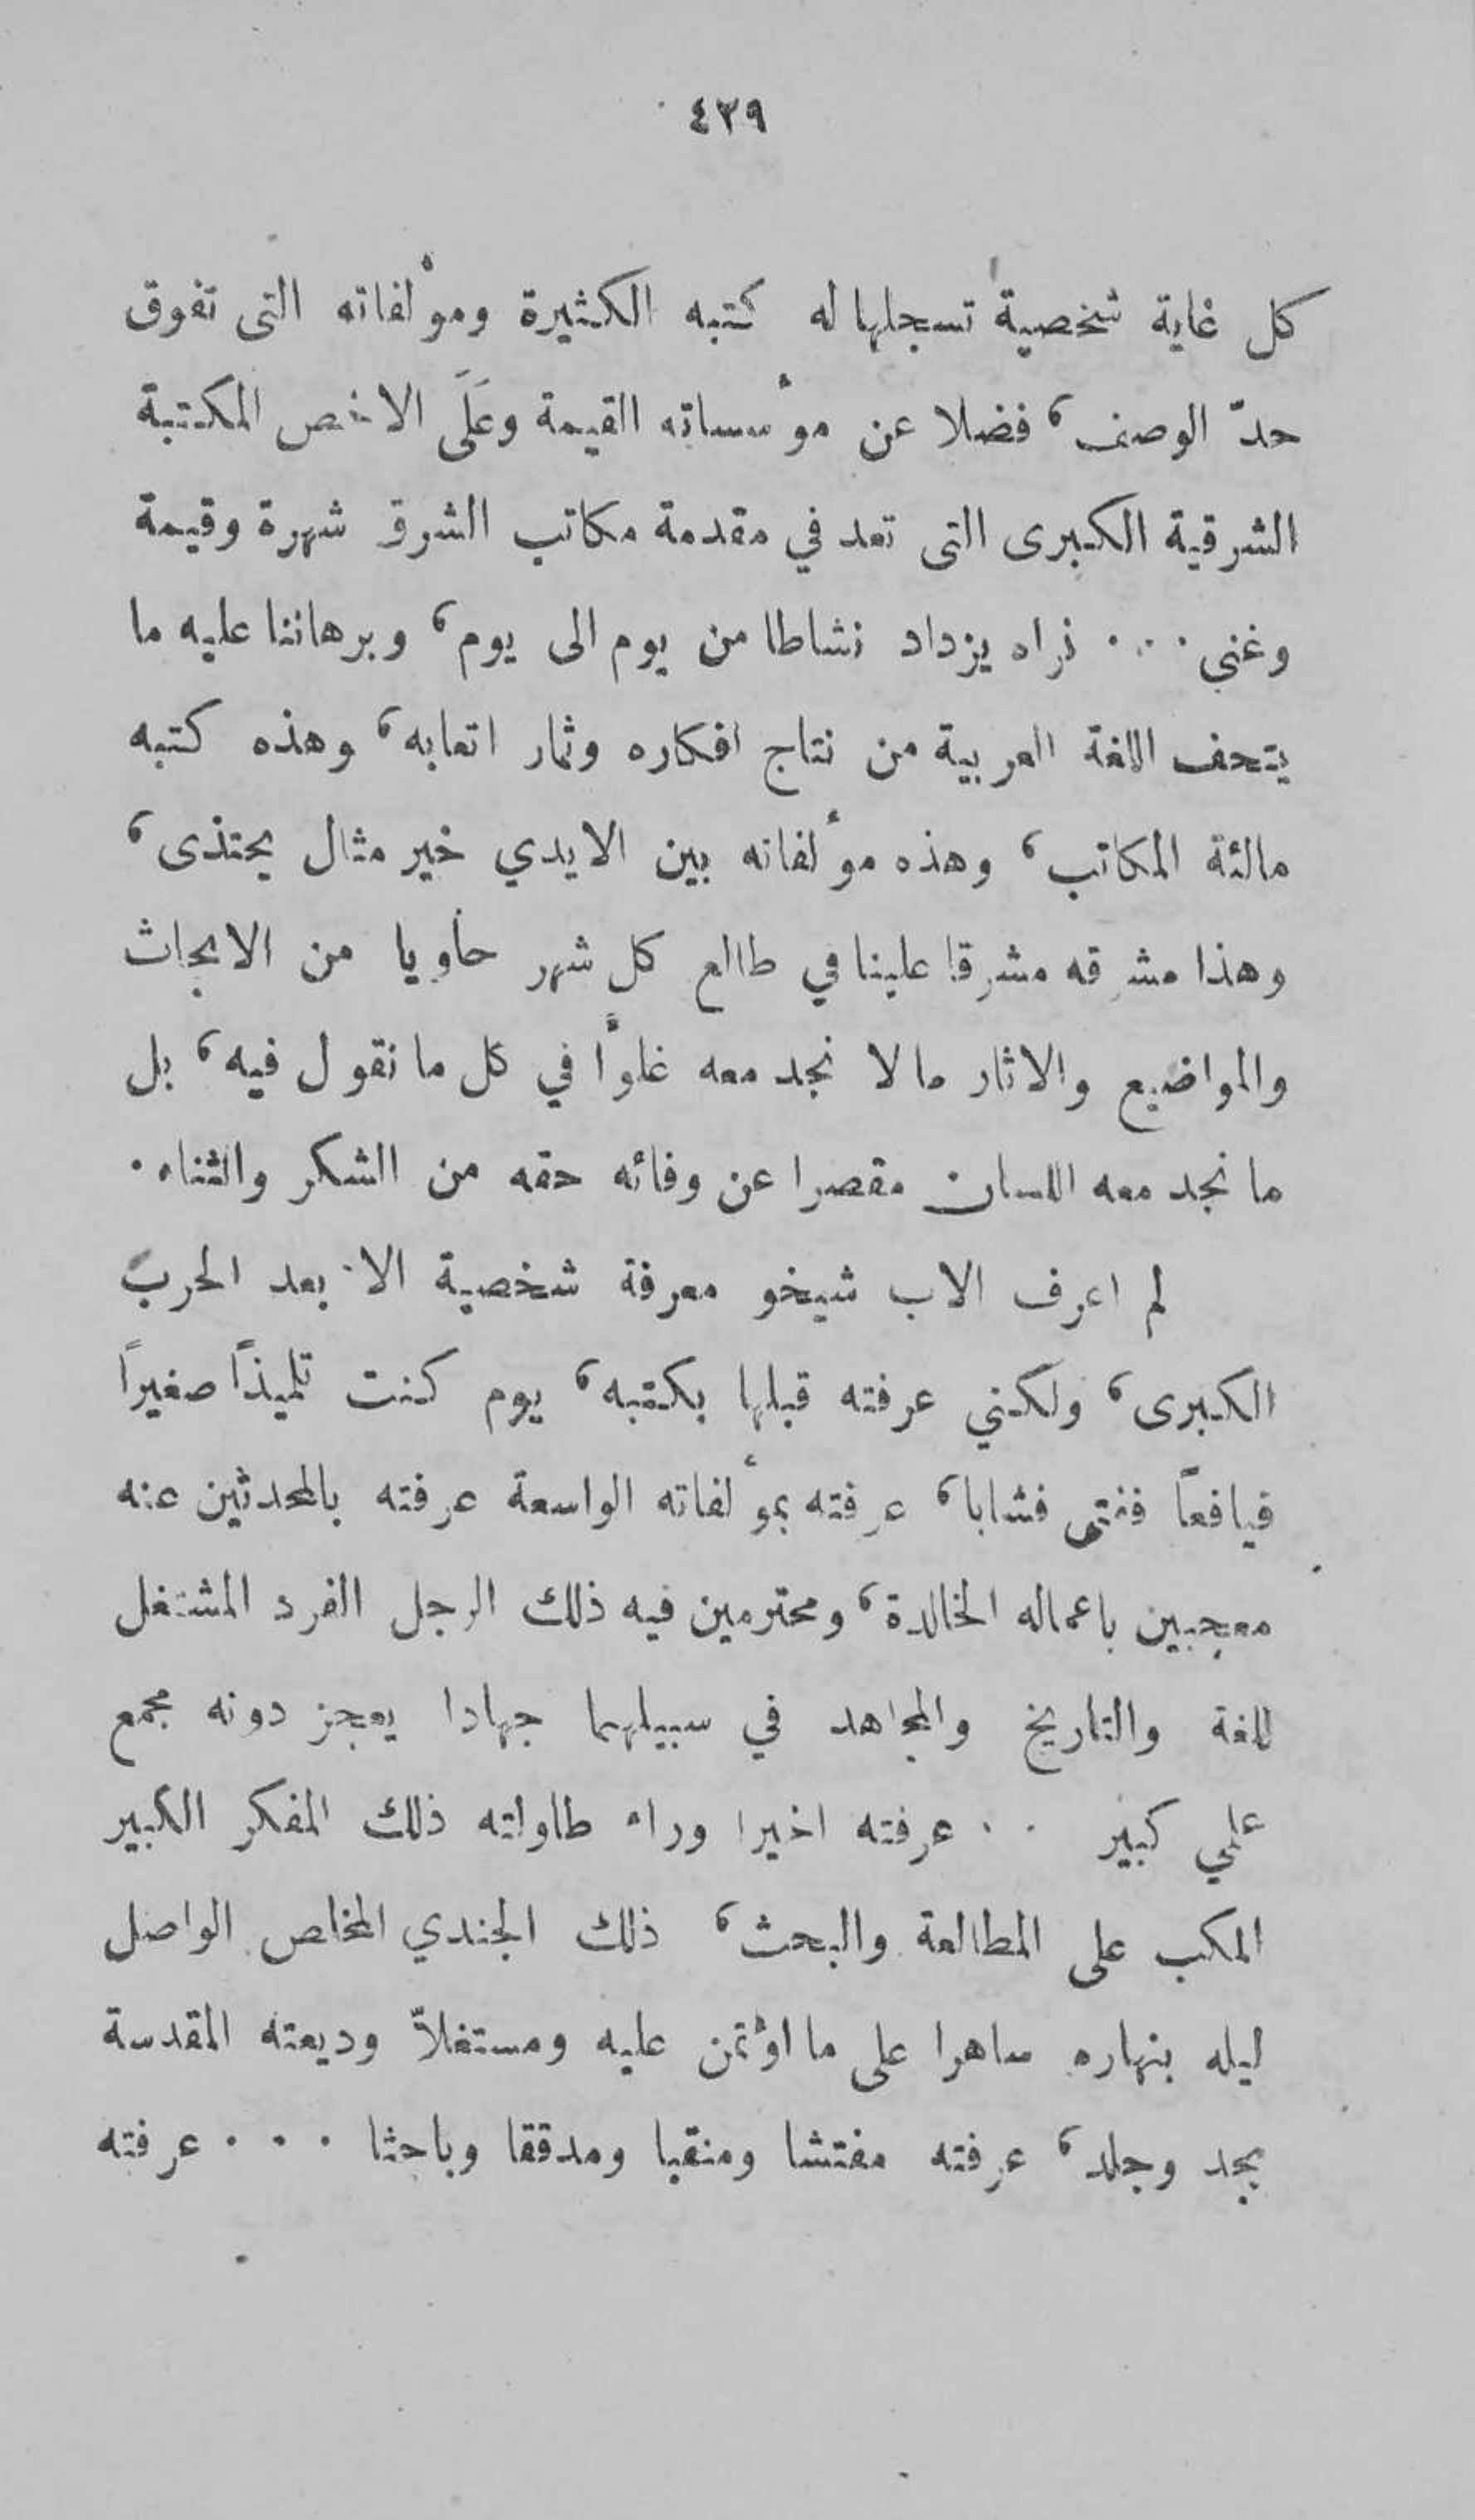 ٤٢٩
كل غاية شخصية تسجلها له كتبه الكثيرة ومؤلفاته التى تفوق
حدّ الوصف، فضلا عن مؤسساته القيمة وعَلَى الاخص المكتبة
الشرقية الكبرى التى تعد في مقدمة مكاتب الشرق شهرة وقيمة
وغنى ٠٠٠ نراه يزداد نشاطا من يوم الى يوم، وبرهاننا عليه ما
يتحف اللغة العربية من نتاج افكاره وثمار اتعابه، وهذه كتبه
مالئة المكاتب، وهذه مؤلفاته بين الايدي خير مثال يحتذى،
وهذا مشرقه مشرقا علينا في طالع كل شهر حاويا من الابحاث
والمواضيع والاثار ما لا نجد معه غلوًّا في كل ما نقول فيه، بل
ما نجد معه اللسان مقصرا عن وفائه حقه من الشكر والثناء٠
لم اعرف الاب شيخو معرفة شخصية الا بعد الحرب
الكبرى، ولكني عرفته قبلها بكتبه، يوم كنت تلميذاً صغيراً
فيافعاً ففتى فشابا، عرفته بمؤلفاته الواسعة عرفته بالمحدثين عنه
معجبين باعماله الخالدة، ومحترمين فيه ذلك الرجل الفرد المشتغل
للغة والتاريخ والمجاهد في سبيلهما جهادا يعجز دونه مجمع
علمي كبير ٠٠ عرفته اخيرا وراء طاولته ذلك المفكر الكبير
المكب على المطالعة والبحث، ذلك الجندي المخلص الواصل
ليله بنهاره ساهرا على ما اؤتمن عليه ومستغلاّ وديعته المقدسة
بجد وجلد، عرفته مفتشا ومنقبا ومدققا وباحثا ٠٠٠ عرفته